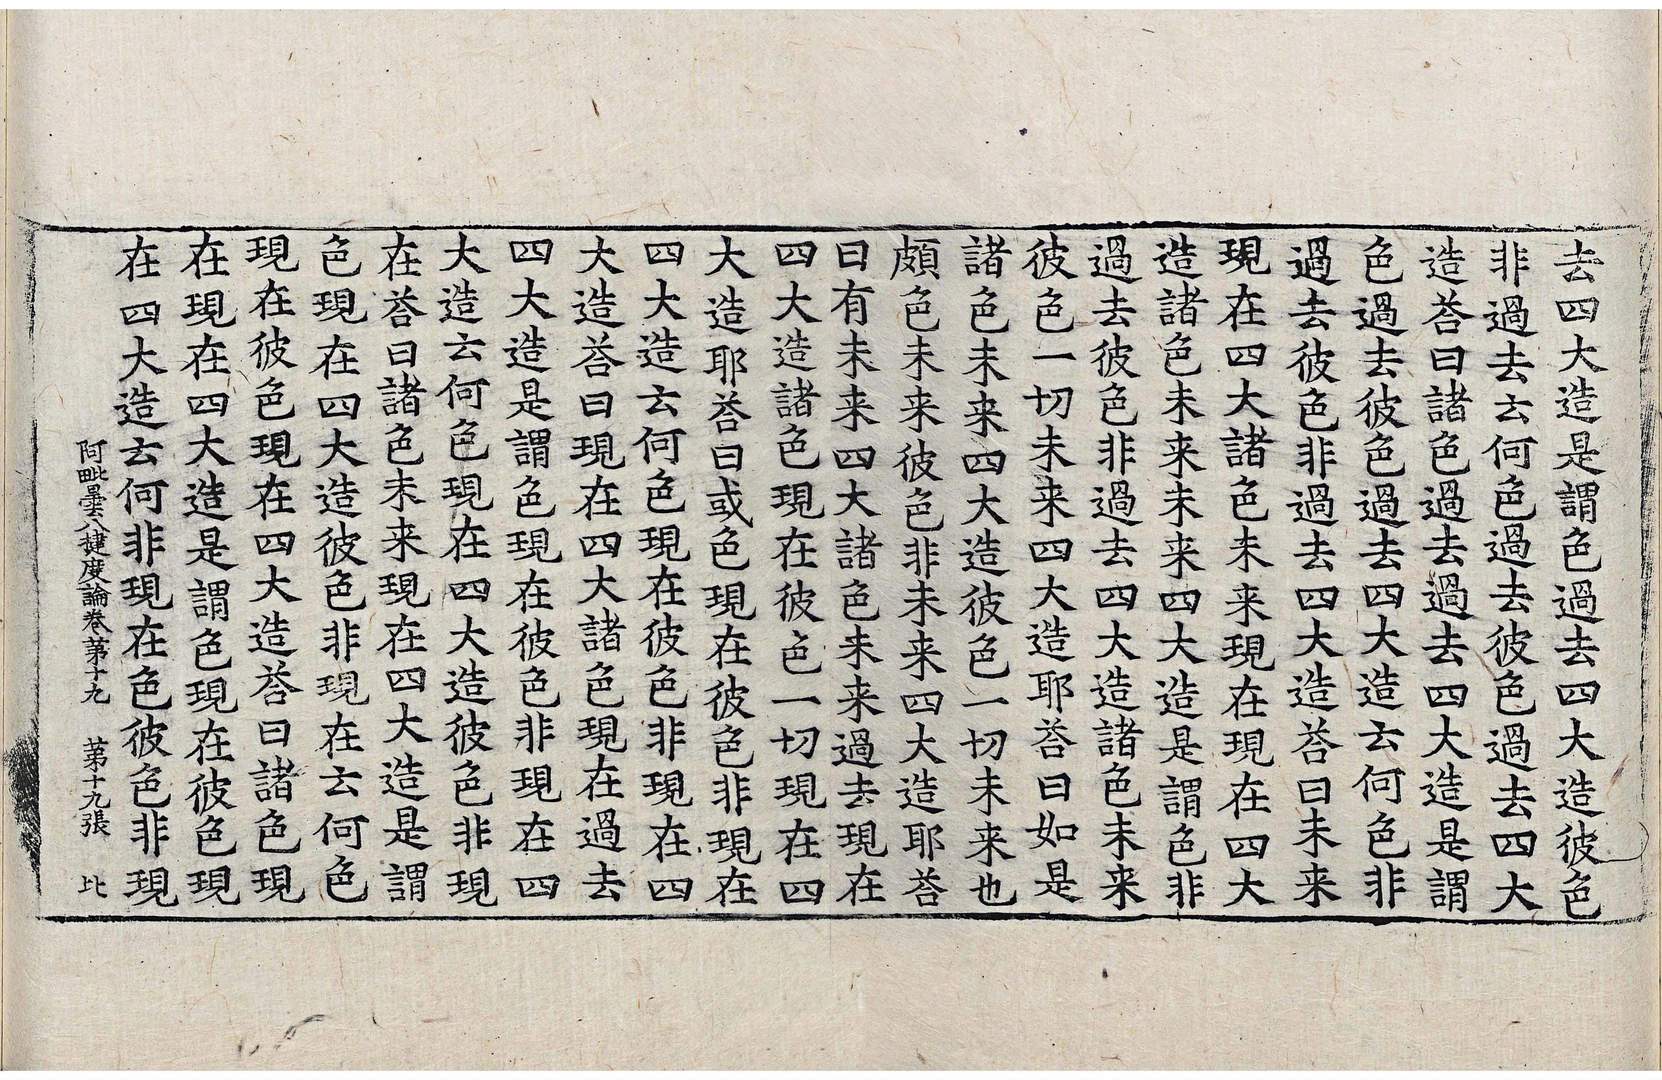 去四大造是謂色過去四大造彼色
非過去云何色過去彼色過去四大
造荅曰諸色過去過去四大造是謂
色過去彼色過去四大造云何色非
過去彼色非過去四大造荅曰未来
現在四大諸色未来現在現在四大
造諸色未来未来四大造是謂色非
過去彼色非過去四大造諸色未来
彼色一切未来四大造耶荅曰如是
諸色未来四大造彼色一切未来也
頗色未来彼色非未来四大造耶荅
曰有未来四大諸色未来過去現在
四大造諸色現在彼色一切現在四
大造耶荅曰或色現在彼色非現在
四大造云何色現在彼色非現在四
大造荅曰現在四大諸色現在過去
四大造是謂色現在彼色非現在四
大造云何色現在四大造彼色非現
在荅曰諸色未来現在四大造是謂
色現在四大造彼色非現在云何色
現在彼色現在四大造荅曰諸色現
在現在四大造是謂色現在彼色現
在四大造云何非現在色彼色非現
阿毗曇八揵度論卷苐十九 苐十九張 比